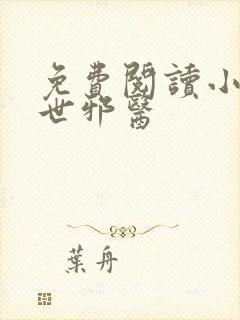 免費閱讀小
世邪醫
葉舟